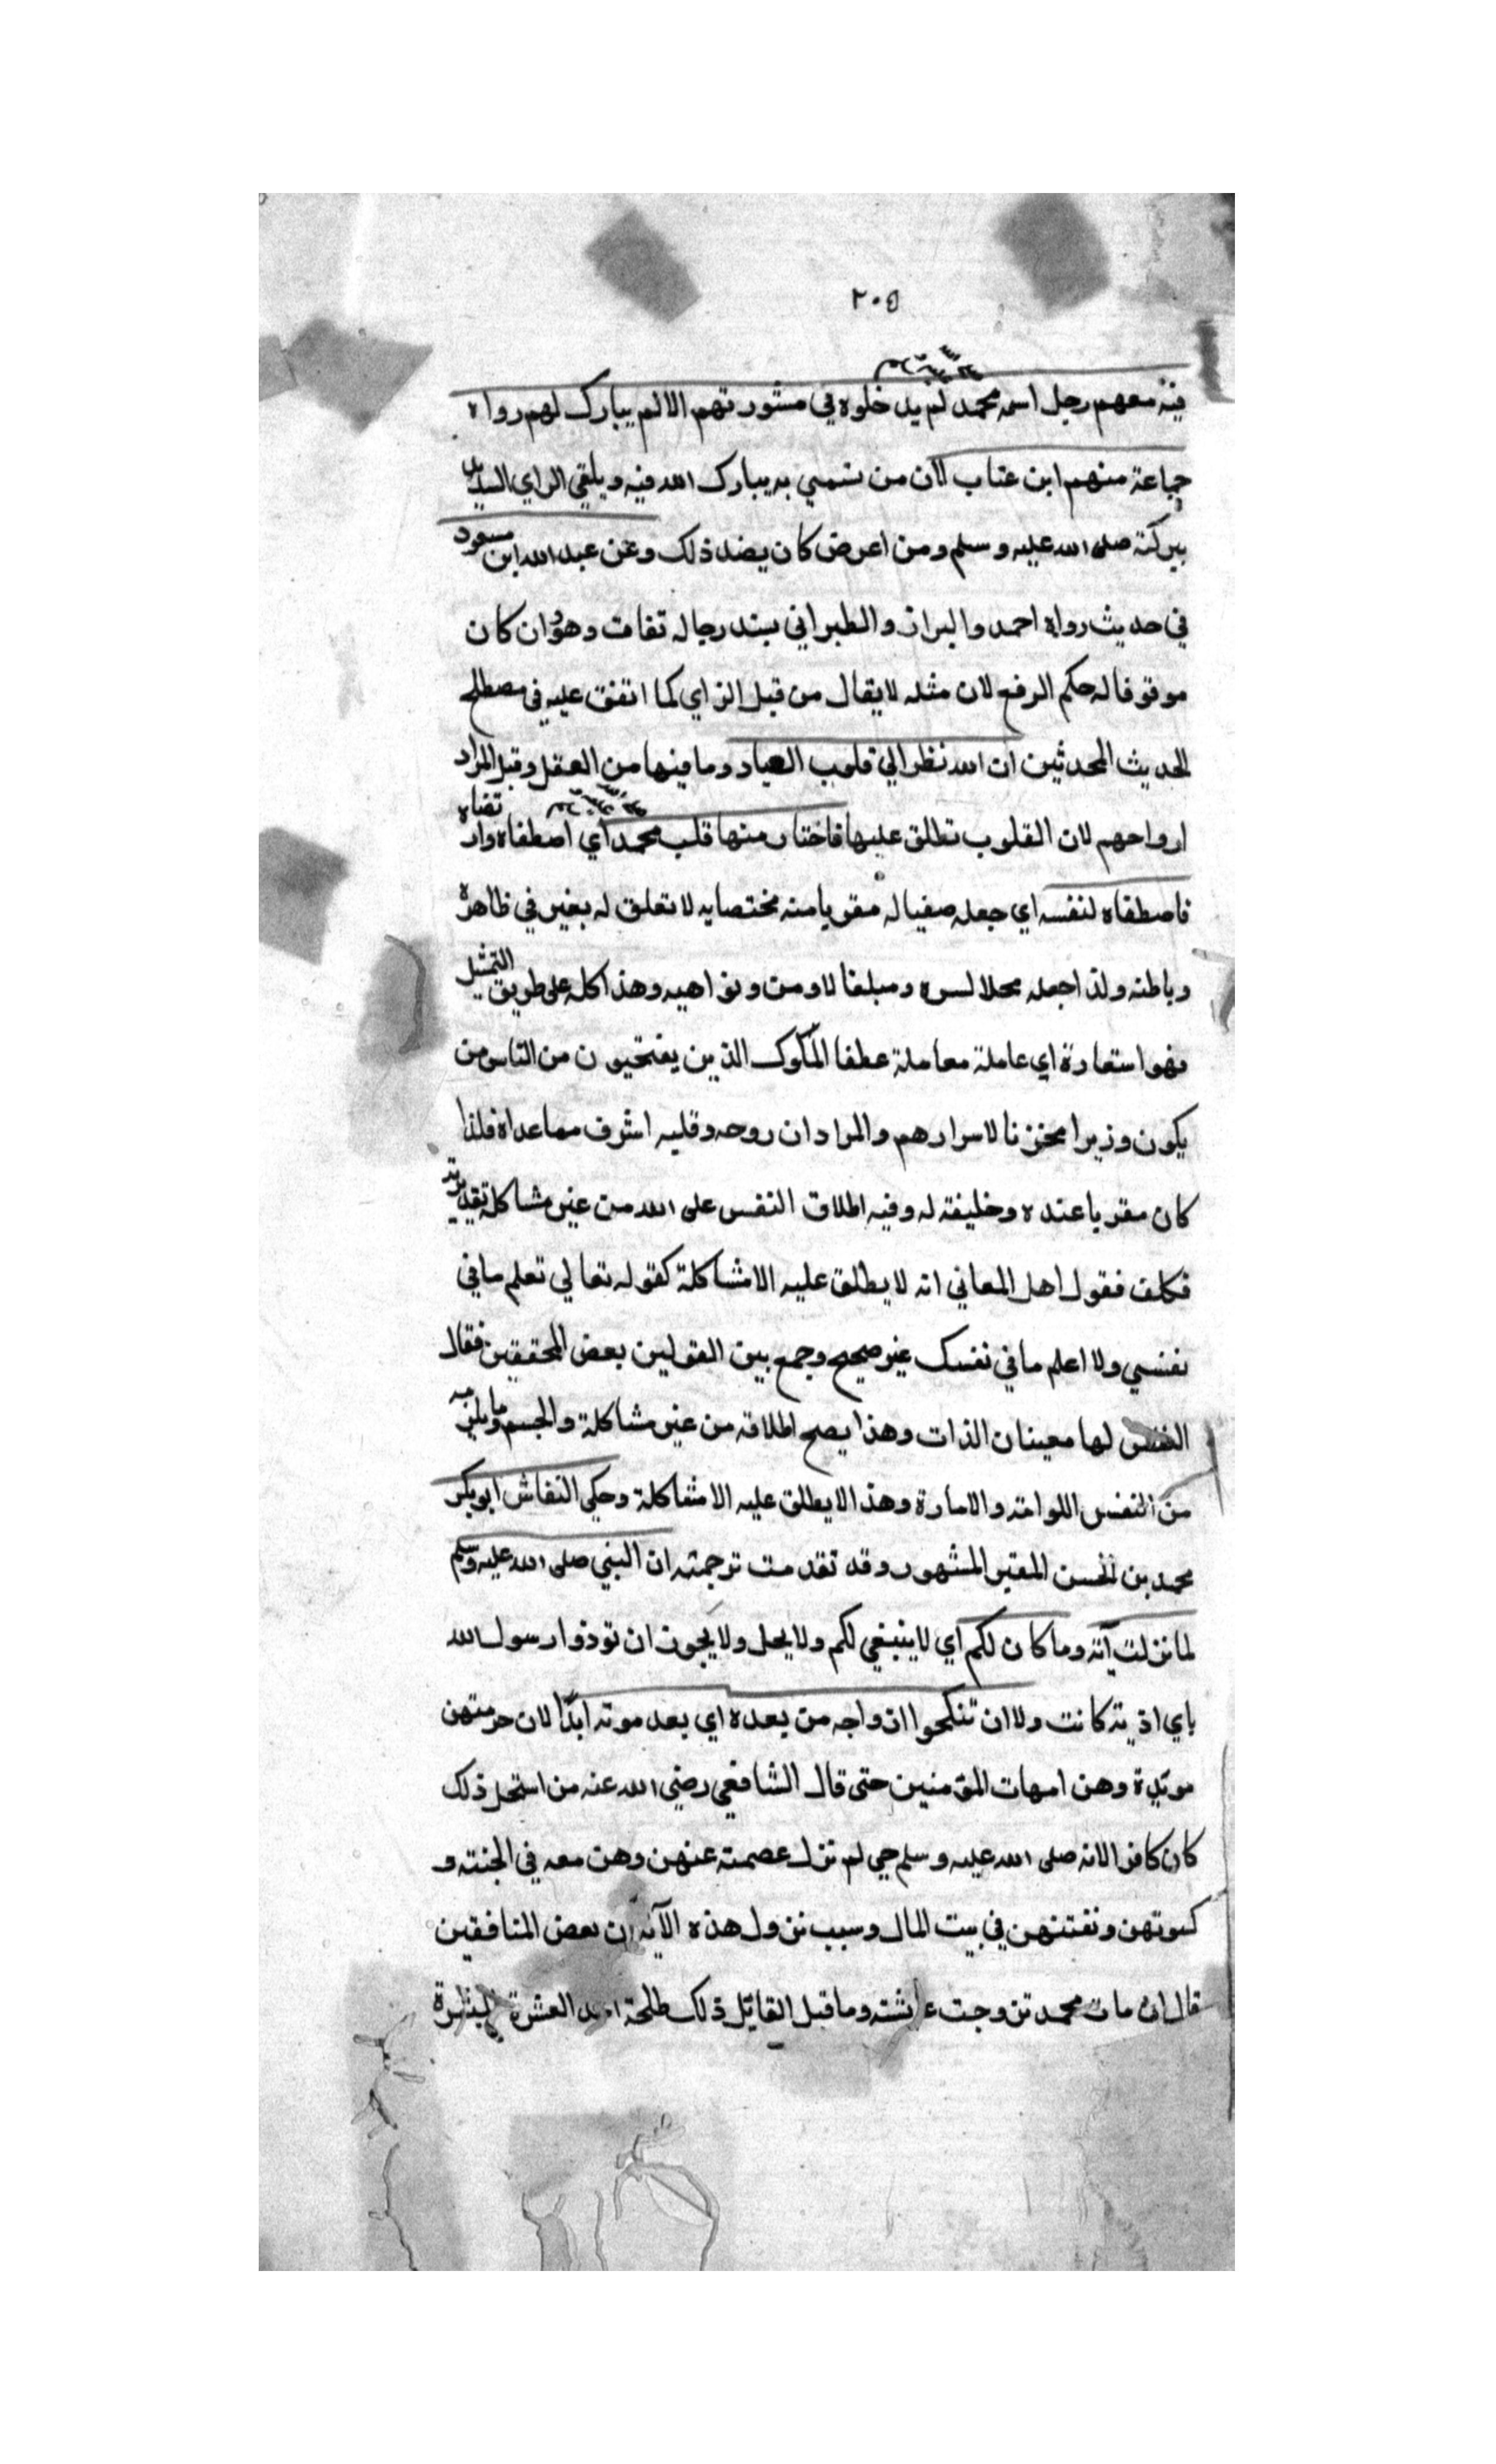 ٢٠٥
فيه معهم رجل اسمه محمد لم يدخلوه في مشورتهم الا لم يبارك لهم رواه
صلى الله عليه وسلم
جماعة منهم ابن عتاب لان من تسمي به يبارك الله فيه ويلقي الراي السديد
ببركته صلى الله عليه وسلم ومن اعرض كان بضد ذلك وعن عبد الله ابن مسعود
في حديث رواه احمد والبزاز والطبراني بسند رجاله ثقات وهو وان كان
موقوفا له حكم الرفع لان مثله لا يقال من قبل الراي كما اتفق عليه في مصطلح
الحديث المحدثين ان الله نظر الي قلوب العباد وما فيها من العقل وقبل المراد
ارواحهم لان القلوب تطلق عليها فاختار منها قلب محمد اي اصطفاه وارتضاه
صلى الله عليه وسلم
فاصطفاه لنفسه اي جعله صفيا له مقربا منه مختصا به لا تعلق له بغيره في ظاهره
وباطنه ولذا جعله محلا لسره ومبلغا لاومره ونواهيه وهذا كله على طريق التمثيل
فهو استعارة اي عاملة معاملة عظفا الملوك الذين يفتحيون من الناس من
يكون وزيرا مخزنا لاسرارهم والمراد ان روحه وقلبه اشرف مما عداه فلذا
كان مقربا عنده وخليفته له وفيه اطلاق النفس على الله من غير مشاكلة تقديرية
فكلف فقول اهل المعاني انه لا يطلق عليه الا مشاكلة كقوله تعالي تعلم ما في
نفسي ولا اعلم ما في نفسك غير صحيح وجمع بين القولين بعض المحققين فقال
النفس لها معينان الذات وهذا يصح اطلاقه من غير مشاكلة والجسم وما يلزمه
من النفس اللوامة والامارة وهذا لا يطلق عليه الا مشاكلة وحكي النقاش ابو بكر
محمد بن الحسن المقير المشهور وقد تقدمت ترجمته ان النبي صلى الله عليه وسلم
لما نزلت آية وما كان لكم اي لا ينبغي لكم ولا يحل ولا يجوز ان توذوا رسول الله
باي اذية كانت ولا ان تنكحوا ازواجه من بعده اي بعد موته ابدًا لان حرمتهن
موبدة وهن امهات المؤمنين حتى قال الشافعي رضي الله عنه من استحل ذلك
كان كافرا لانه صلى الله عليه وسلم حي لم تزل عصمته عنهن وهن معه في الجنة و
كسوتهن ونفقتهن في بيت المال وسبب نزول هذه الآية ان بعض المنافقين
قال ان مات محمد تزوجت عائشة وما قبل القايل ذلك طلحة احد العشرة المبشرة